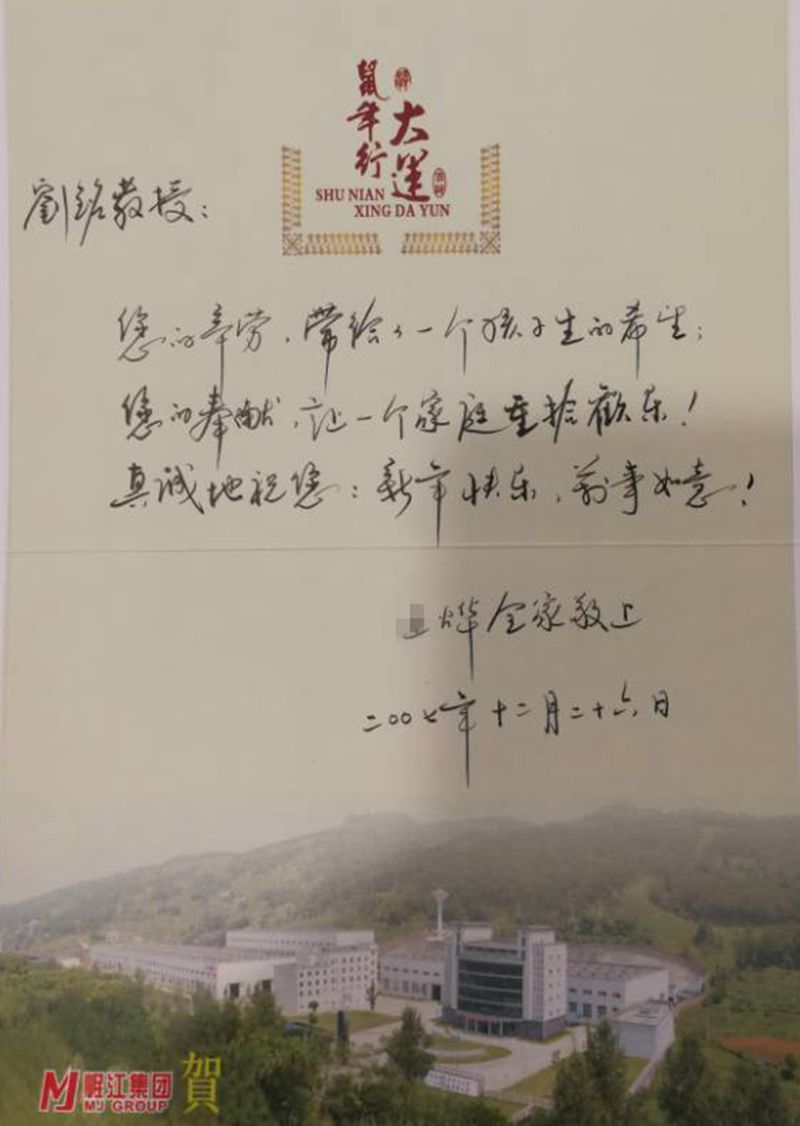 鼠年行
大運
SHU NIAN
XING DA YUN
劉銘教授：
您的辛劳，带给了一个孩子生的希望；
您的奉献，让一个家庭重拾歡乐！
真诚地祝您：新年快乐，万事如意！
烨全家敬上
二〇〇七年十二月二十六日
岷江集团
MJ GROUP
賀